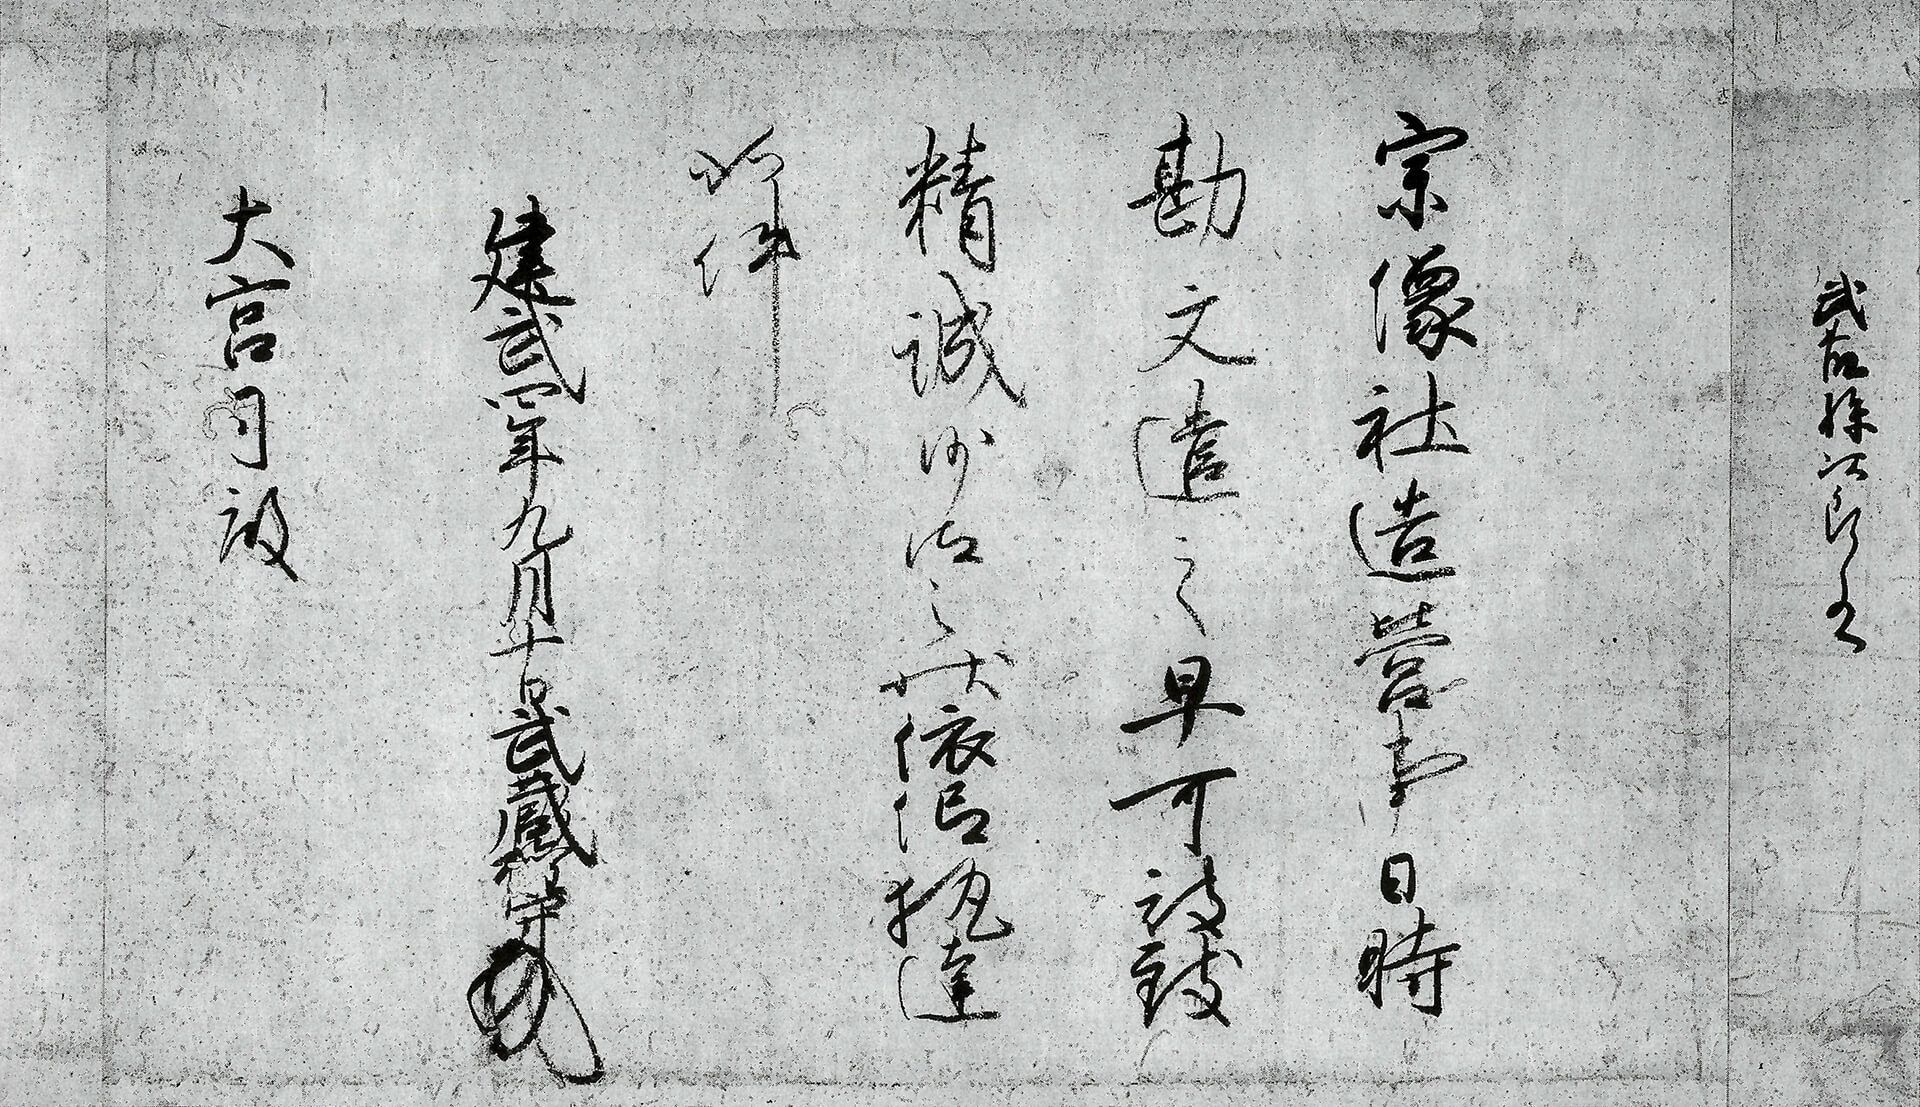 宗像社造営事日時
勘文遣之早可被致
精誠沙汰之状依仰執達
如件
建武四年九月十日武蔵権守
大宮司殿